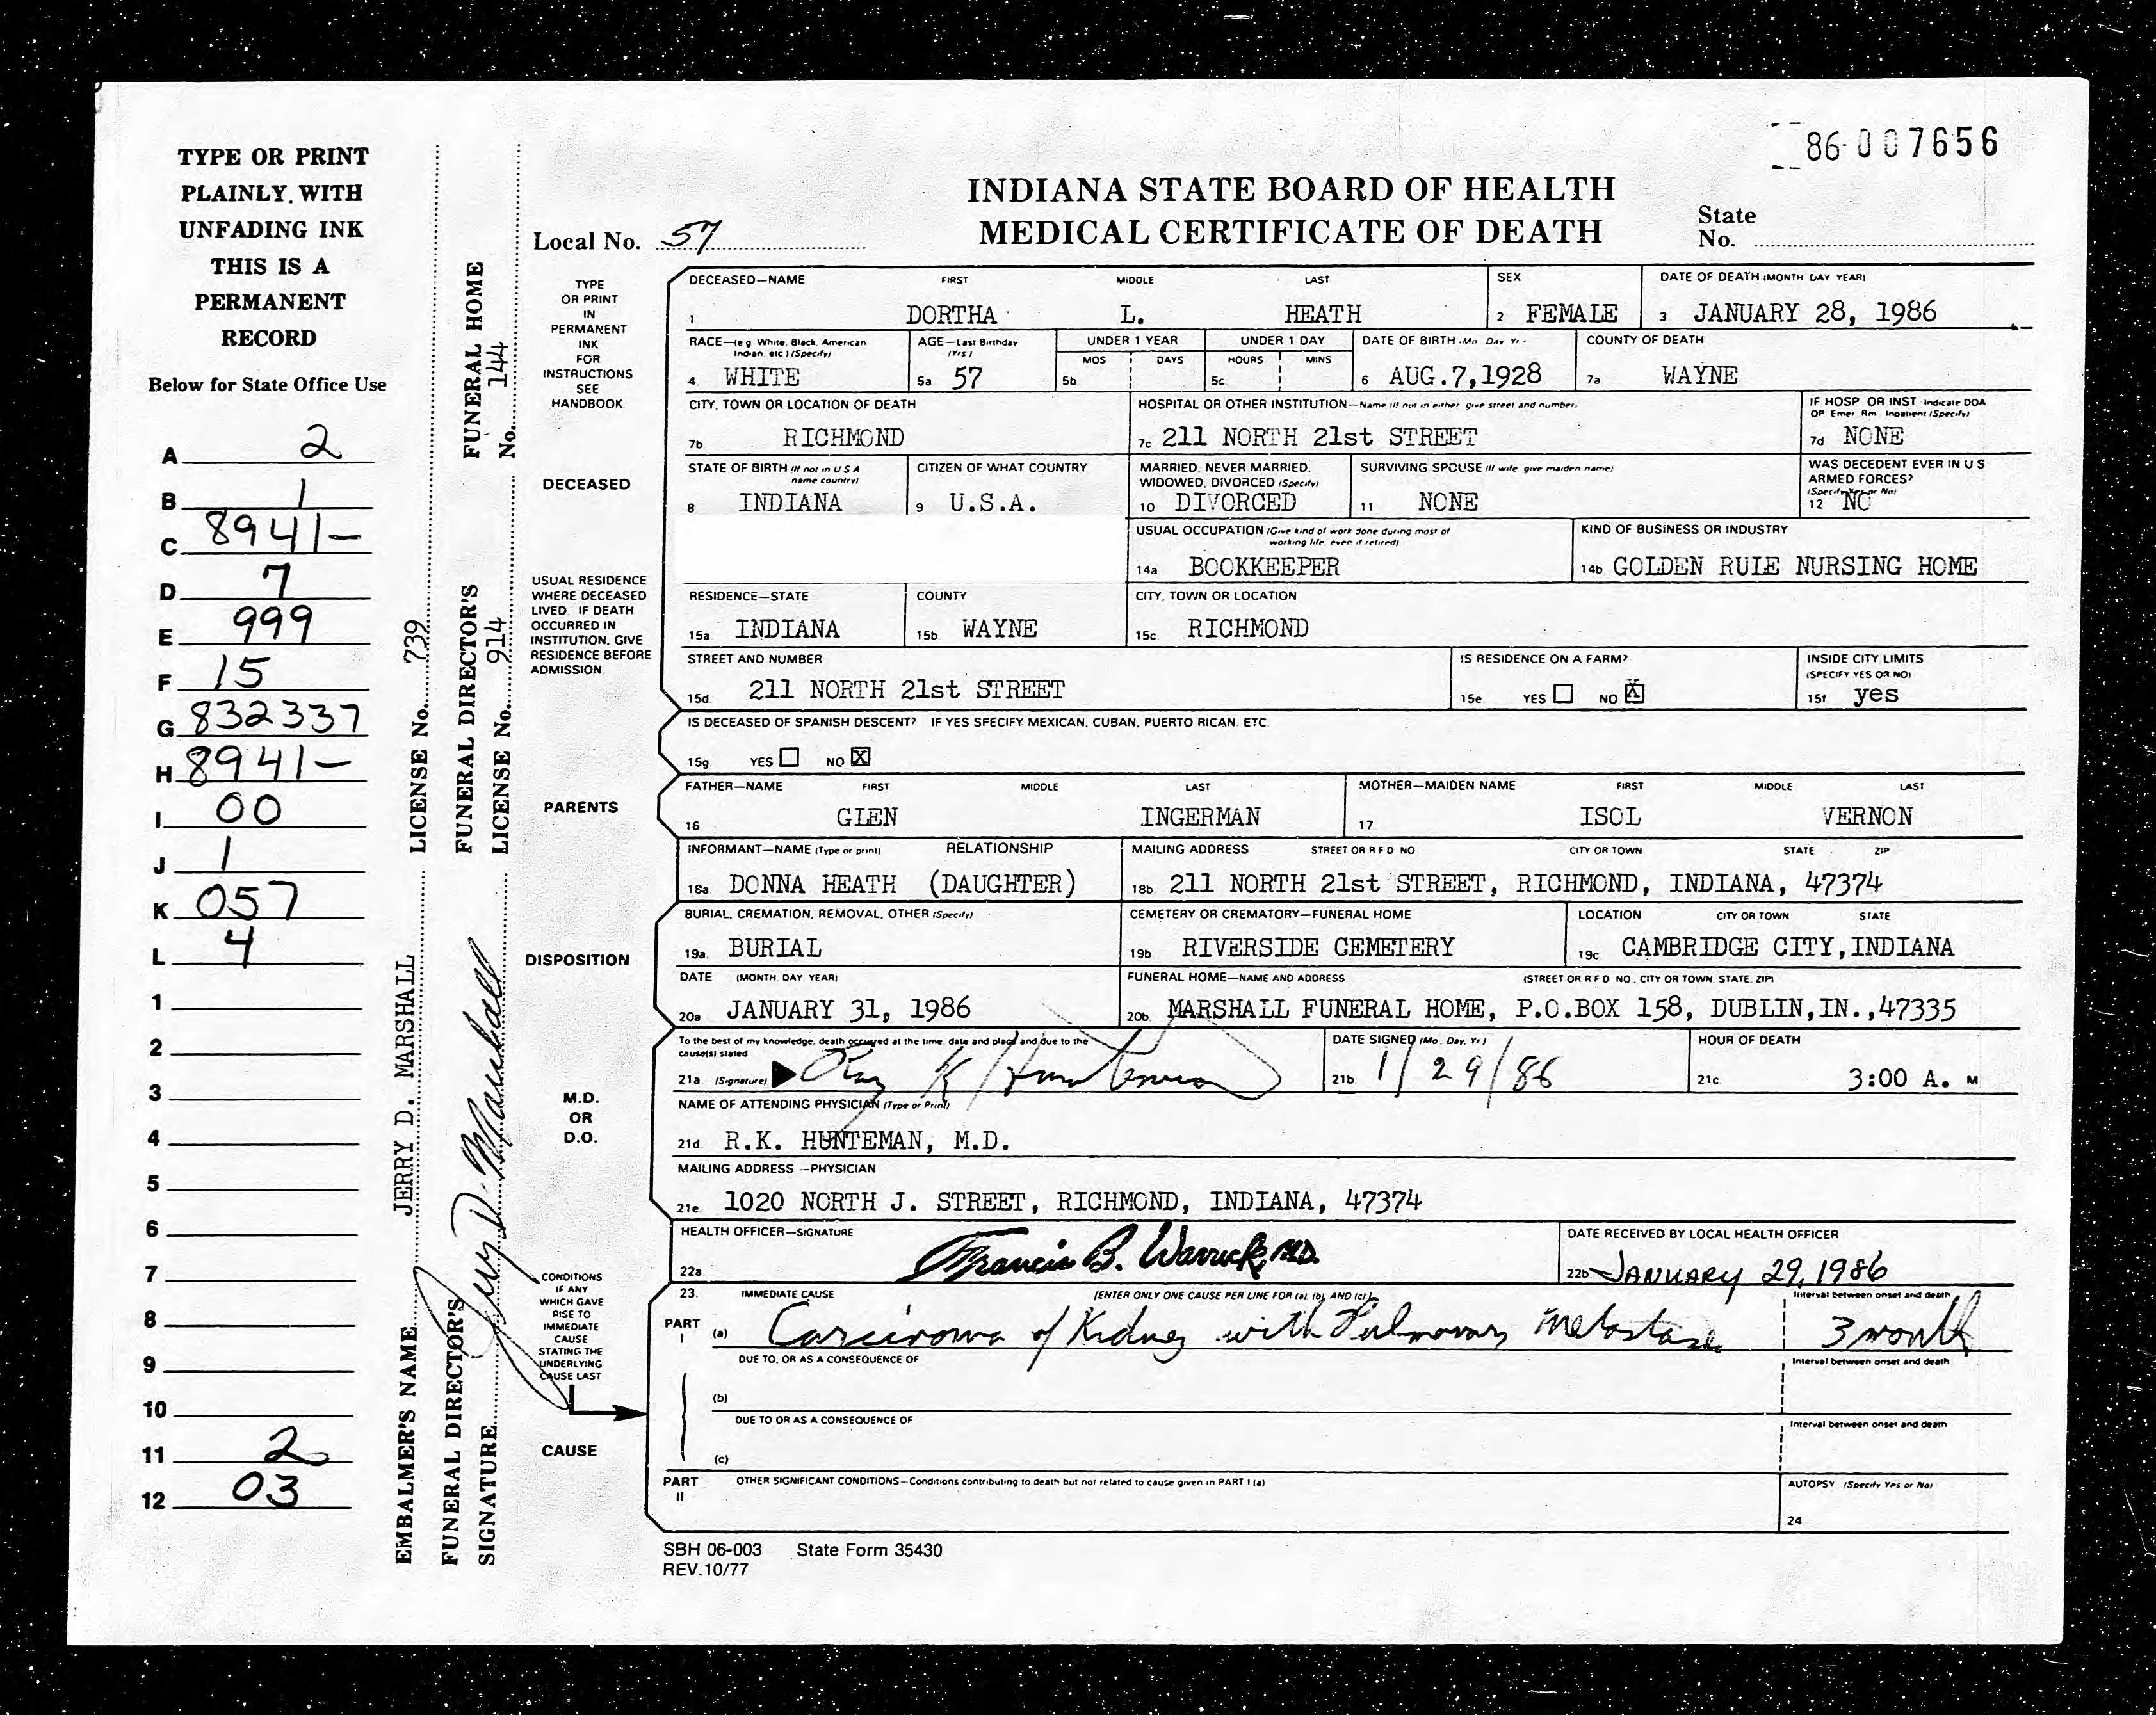 86-007656
INDIANA STATE BOARD OF HEALTH
MEDICAL CERTIFICATE OF DEATH
Local No. 57
State
No.
TYPE OR PRINT
PLAINLY, WITH
UNFADING INK
THIS IS A
PERMANENT
RECORD
Below for State Office Use
A 2
B 1
C 8941-
D 7
E 999
F 15
G 832337
H 8941-
I 00
J 1
K 057
L 4
1
2
3
4
5
6
7
8
9
10
11 2
12 03
EMBALMER'S NAME JERRY D. MARSHALL LICENSE No. 739
FUNERAL DIRECTOR'S SIGNATURE Jerry D. Marshall
FUNERAL DIRECTOR'S LICENSE No. 914
FUNERAL HOME No. 144
TYPE
OR PRINT
IN
PERMANENT
INK
FOR
INSTRUCTIONS
SEE
HANDBOOK
DECEASED
DECEASED—NAME FIRST MIDDLE LAST SEX DATE OF DEATH (MONTH DAY YEAR)
1 DORTHA L. HEATH 2 FEMALE 3 JANUARY 28, 1986
RACE—(e g White, Black, American Indian, etc ) (Specify) AGE—Last Birthday (Yrs ) UNDER 1 YEAR UNDER 1 DAY DATE OF BIRTH (Mo Day Yr) COUNTY OF DEATH
MOS DAYS HOURS MINS
4 WHITE 5a 57 5b 5c 6 AUG.7,1928 7a WAYNE
CITY, TOWN OR LOCATION OF DEATH HOSPITAL OR OTHER INSTITUTION—Name (If not in either give street and number) IF HOSP OR INST Indicate DOA OP Emer Rm Inpatient (Specify)
7b RICHMOND 7c 211 NORTH 21st STREET 7d NONE
STATE OF BIRTH (If not in U S A name country) CITIZEN OF WHAT COUNTRY MARRIED, NEVER MARRIED, WIDOWED, DIVORCED (Specify) SURVIVING SPOUSE (If wife give maiden name) WAS DECEDENT EVER IN U S ARMED FORCES? (Specify Yes or No)
8 INDIANA 9 U.S.A. 10 DIVORCED 11 NONE 12 NO
USUAL OCCUPATION (Give kind of work done during most of working life, even if retired) KIND OF BUSINESS OR INDUSTRY
14a BOOKKEEPER 14b GOLDEN RULE NURSING HOME
USUAL RESIDENCE
WHERE DECEASED
LIVED. IF DEATH
OCCURRED IN
INSTITUTION, GIVE
RESIDENCE BEFORE
ADMISSION
RESIDENCE—STATE COUNTY CITY, TOWN OR LOCATION
15a INDIANA 15b WAYNE 15c RICHMOND
STREET AND NUMBER IS RESIDENCE ON A FARM? INSIDE CITY LIMITS (SPECIFY YES OR NO)
15d 211 NORTH 21st STREET 15e YES NO X 15f yes
IS DECEASED OF SPANISH DESCENT? IF YES SPECIFY MEXICAN, CUBAN, PUERTO RICAN, ETC.
15g. YES NO X
PARENTS
FATHER—NAME FIRST MIDDLE LAST MOTHER—MAIDEN NAME FIRST MIDDLE LAST
16 GLEN INGERMAN 17 ISOL VERNON
INFORMANT—NAME (Type or print) RELATIONSHIP MAILING ADDRESS STREET OR R F D NO CITY OR TOWN STATE ZIP
18a. DONNA HEATH (DAUGHTER) 18b 211 NORTH 21st STREET, RICHMOND, INDIANA, 47374
DISPOSITION
BURIAL, CREMATION, REMOVAL, OTHER (Specify) CEMETERY OR CREMATORY—FUNERAL HOME LOCATION CITY OR TOWN STATE
19a. BURIAL 19b RIVERSIDE CEMETERY 19c CAMBRIDGE CITY,INDIANA
DATE (MONTH, DAY, YEAR) FUNERAL HOME—NAME AND ADDRESS (STREET OR R F D NO., CITY OR TOWN, STATE, ZIP)
20a JANUARY 31, 1986 20b. MARSHALL FUNERAL HOME, P.O.BOX 158, DUBLIN,IN.,47335
M.D.
OR
D.O.
To the best of my knowledge, death occurred at the time, date and place and due to the cause(s) stated DATE SIGNED (Mo., Day, Yr) HOUR OF DEATH
21a. (Signature) Ray K Hunteman 21b 1/29/86 21c 3:00 A. M
NAME OF ATTENDING PHYSICIAN (Type or Print)
21d R.K. HUNTEMAN, M.D.
MAILING ADDRESS —PHYSICIAN
21e. 1020 NORTH J. STREET, RICHMOND, INDIANA, 47374
HEALTH OFFICER—SIGNATURE DATE RECEIVED BY LOCAL HEALTH OFFICER
22a Francis B. Warrick, M.D. 22b JANUARY 29, 1986
CONDITIONS
IF ANY
WHICH GAVE
RISE TO
IMMEDIATE
CAUSE
STATING THE
UNDERLYING
CAUSE LAST
CAUSE
23. IMMEDIATE CAUSE [ENTER ONLY ONE CAUSE PER LINE FOR (a), (b), AND (c)] Interval between onset and death
PART I (a) Carcinoma of Kidney with Pulmonary Metastase 3 month
DUE TO, OR AS A CONSEQUENCE OF Interval between onset and death
(b)
DUE TO OR AS A CONSEQUENCE OF Interval between onset and death
(c)
PART II OTHER SIGNIFICANT CONDITIONS—Conditions contributing to death but not related to cause given in PART I (a) AUTOPSY (Specify Yes or No)
24
SBH 06-003 State Form 35430
REV.10/77